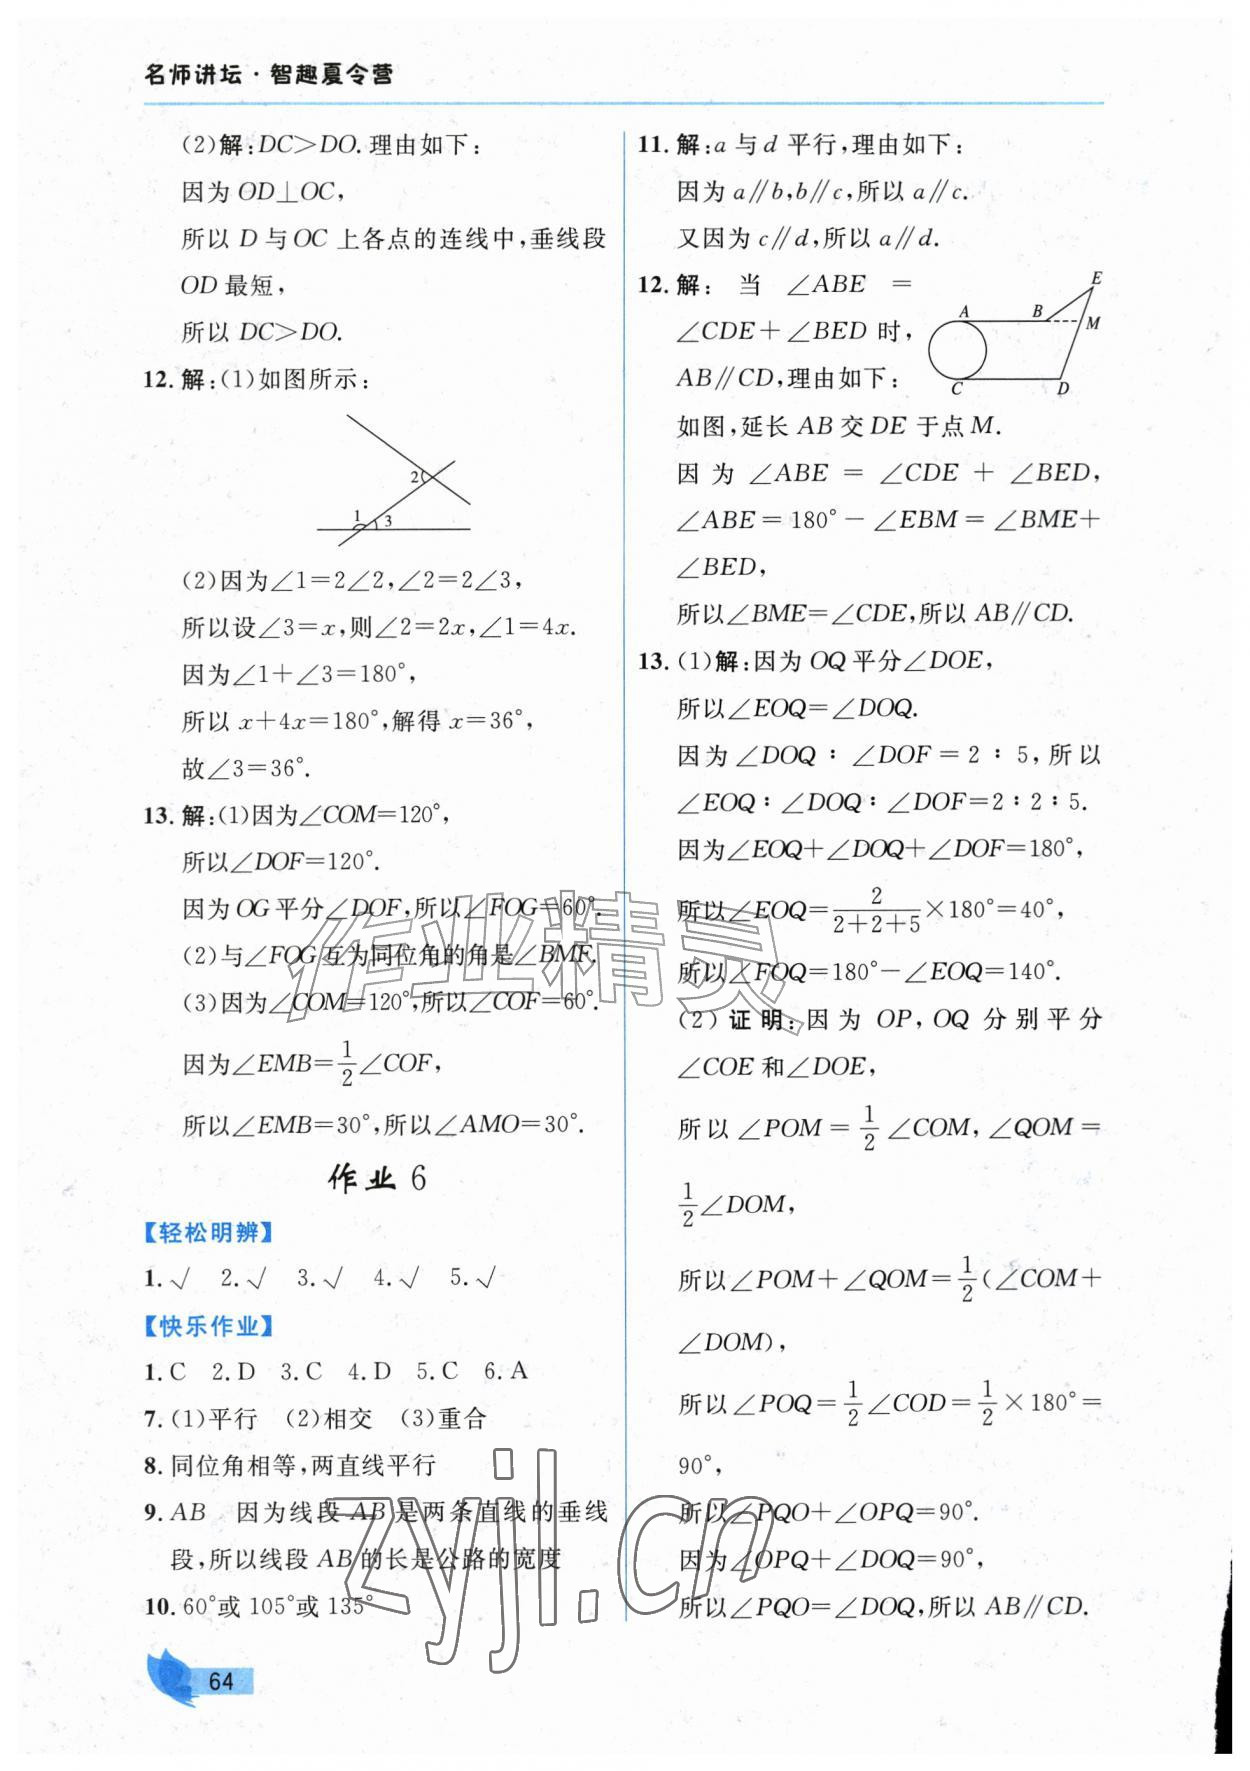 名师讲坛·智趣夏令营
(2)解:DC>DO.理由如下:
因为OD⊥OC,
所以D与OC上各点的连线中,垂线段
OD最短,
所以DC>DO.
12.解:(1)如图所示:
2
1
3
(2)因为∠1=2∠2,∠2=2∠3,
所以设∠3=x,则∠2=2x,∠1=4x.
因为∠1+∠3=180°,
所以x+4x=180°,解得x=36°,
故∠3=36°.
13.解:(1)因为∠COM=120°,
所以∠DOF=120°.
因为OG平分∠DOF,所以∠FOG=60°.
(2)与∠FOG互为同位角的角是∠BMF.
(3)因为∠COM=120°,所以∠COF=60°.
因为∠EMB=1/2∠COF,
所以∠EMB=30°,所以∠AMO=30°.
作业6
【轻松明辨】
1.√ 2.√ 3.√ 4.√ 5.√
【快乐作业】
1.C 2.D 3.C 4.D 5.C 6.A
7.(1)平行 (2)相交 (3)重合
8.同位角相等,两直线平行
9.AB 因为线段AB是两条直线的垂线
段,所以线段AB的长是公路的宽度
10.60°或105°或135°
11.解:a与d平行,理由如下:
因为a∥b,b∥c,所以a∥c.
又因为c∥d,所以a∥d.
12.解:当∠ABE=
∠CDE+∠BED时,
AB∥CD,理由如下:
E
A
B
M
C
D
如图,延长AB交DE于点M.
因为∠ABE=∠CDE+∠BED,
∠ABE=180°-∠EBM=∠BME+
∠BED,
所以∠BME=∠CDE,所以AB∥CD.
13.(1)解:因为OQ平分∠DOE,
所以∠EOQ=∠DOQ.
因为∠DOQ∶∠DOF=2∶5,所以
∠EOQ∶∠DOQ∶∠DOF=2∶2∶5.
因为∠EOQ+∠DOQ+∠DOF=180°,
所以∠EOQ=2/(2+2+5)×180°=40°,
所以∠FOQ=180°-∠EOQ=140°.
(2)证明:因为OP,OQ分别平分
∠COE和∠DOE,
所以∠POM=1/2∠COM,∠QOM=
1/2∠DOM,
所以∠POM+∠QOM=1/2(∠COM+
∠DOM),
所以∠POQ=1/2∠COD=1/2×180°=
90°,
所以∠PQO+∠OPQ=90°.
因为∠OPQ+∠DOQ=90°,
所以∠PQO=∠DOQ,所以AB∥CD.
作业精灵
zyjl.cn
64